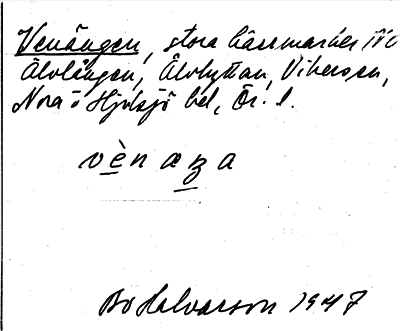 Venängen, stora kärrmarker NV
Älvlången, Älvhyttan, Vikersvik,
Nora o Hjulsjö bel, Ör. l.
vènaza
Bo Halvarson 1947